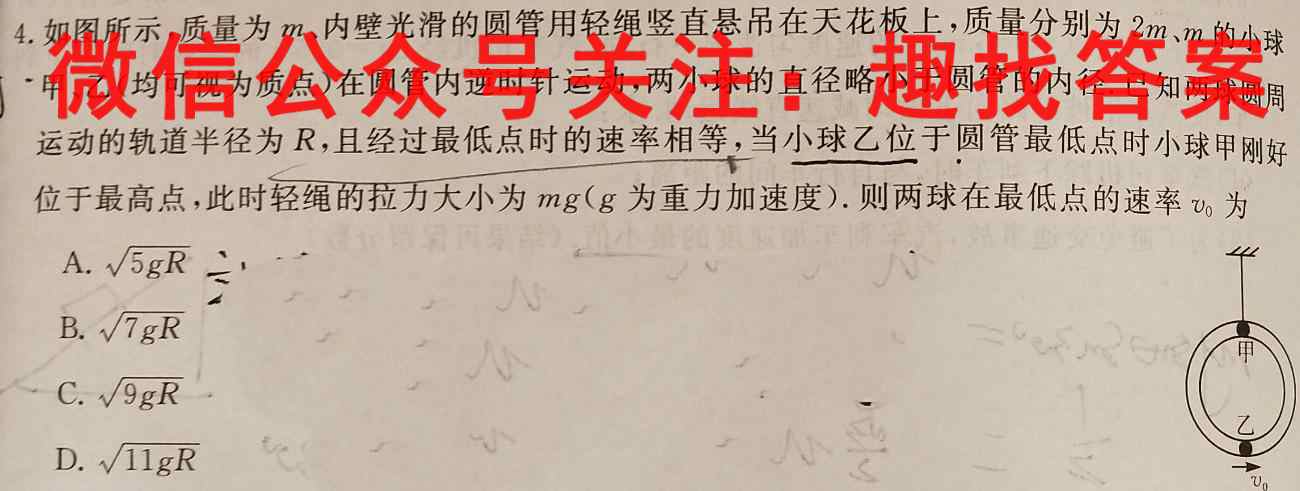 4. 如图所示,质量为 m、内壁光滑的圆管用轻绳竖直悬吊在天花板上,质量分别为 2m、m 的小球
微信公众号关注:趣找答案
甲、乙(均可视为质点)在圆管内逆时针运动,两小球的直径略小于圆管的内径.已知两球圆周
运动的轨道半径为 R,且经过最低点时的速率相等,当小球乙位于圆管最低点时小球甲刚好
位于最高点,此时轻绳的拉力大小为 mg(g 为重力加速度).则两球在最低点的速率 v₀ 为
A. √5gR
B. √7gR
C. √9gR
D. √11gR
甲
乙
v₀